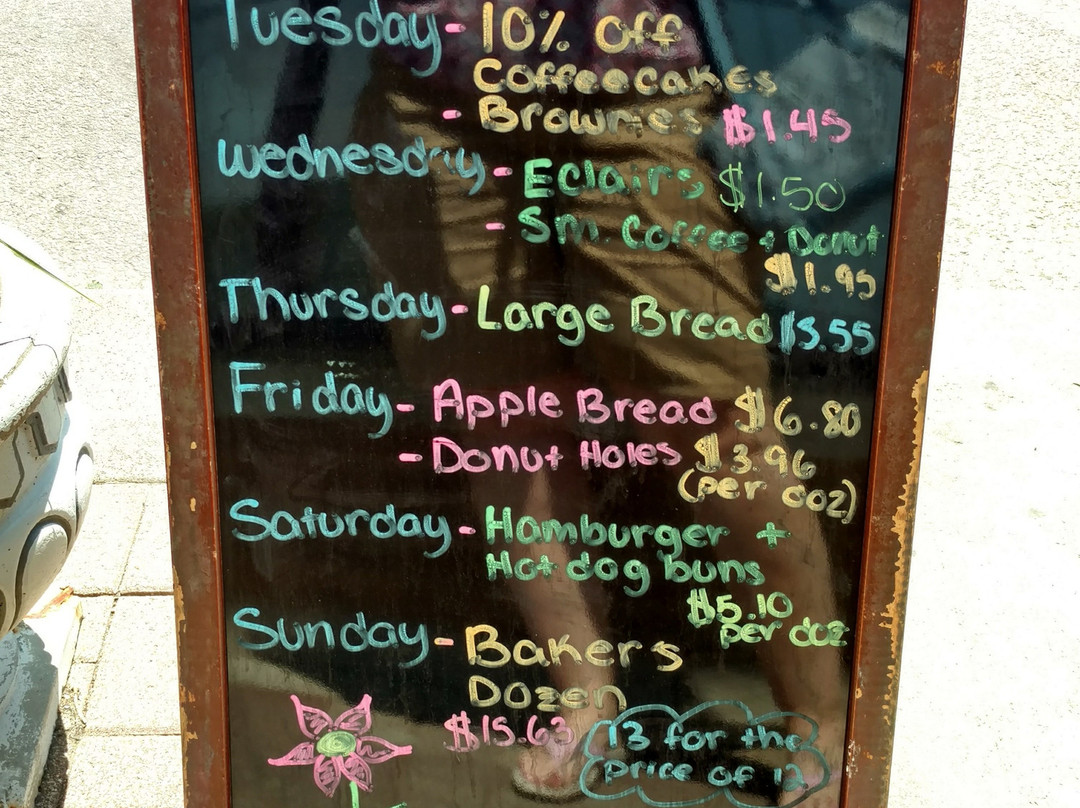 Tuesday - 10% Off
Coffeecakes
- Brownies $1.45
Wednesday - Eclairs $1.50
- Sm. Coffee + Donut
$1.95
Thursday - Large Bread $3.55
Friday - Apple Bread $6.80
- Donut Holes $3.96
(per doz)
Saturday - Hamburger +
Hot dog buns
$5.10
per doz
Sunday - Bakers
Dozen
$15.63
13 for the
price of 12